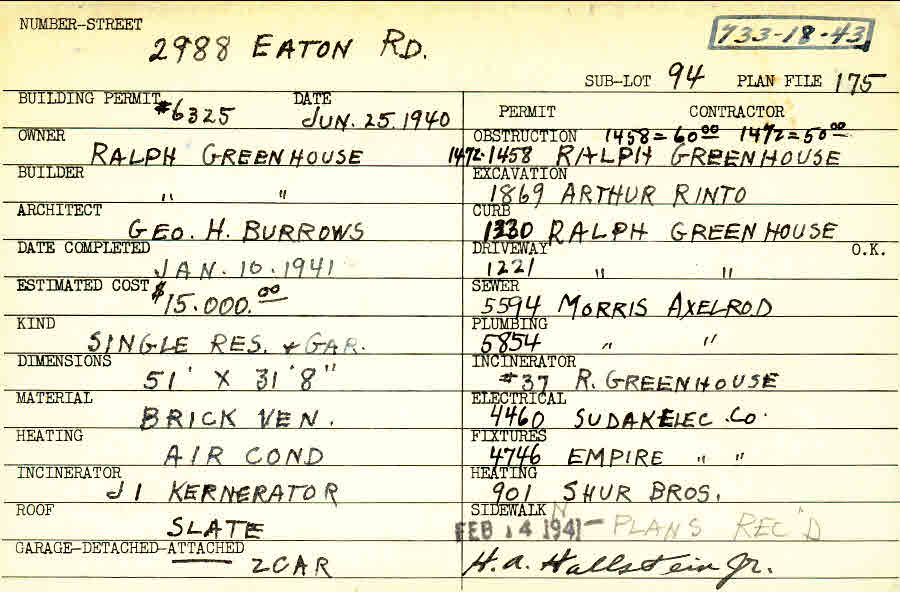 NUMBER-STREET
2988 EATON RD.
733-18-43
SUB-LOT 94 PLAN FILE 175
BUILDING PERMIT #6325 DATE JUN. 25. 1940
PERMIT CONTRACTOR
OWNER RALPH GREENHOUSE
OBSTRUCTION 1458=60 00 1472=50 00
1472-1458 RALPH GREENHOUSE
BUILDER " "
EXCAVATION 1869 ARTHUR RINTO
ARCHITECT GEO. H. BURROWS
CURB 1330 RALPH GREENHOUSE
DATE COMPLETED JAN. 10. 1941
DRIVEWAY O.K.
1221 " "
ESTIMATED COST $15.000.00
SEWER 5594 MORRIS AXELROD
KIND SINGLE RES. & GAR.
PLUMBING 5854 " "
DIMENSIONS 51' X 31'8"
INCINERATOR #37 R. GREENHOUSE
MATERIAL BRICK VEN.
ELECTRICAL 4460 SUDAK ELEC. CO.
HEATING AIR COND
FIXTURES 4746 EMPIRE " "
INCINERATOR J1 KERNERATOR
HEATING 901 SHUR BROS.
ROOF SLATE
SIDEWALK
FEB 14 1941 - PLANS REC'D
GARAGE-DETACHED-ATTACHED 2 CAR
H.A. Hallstein Jr.